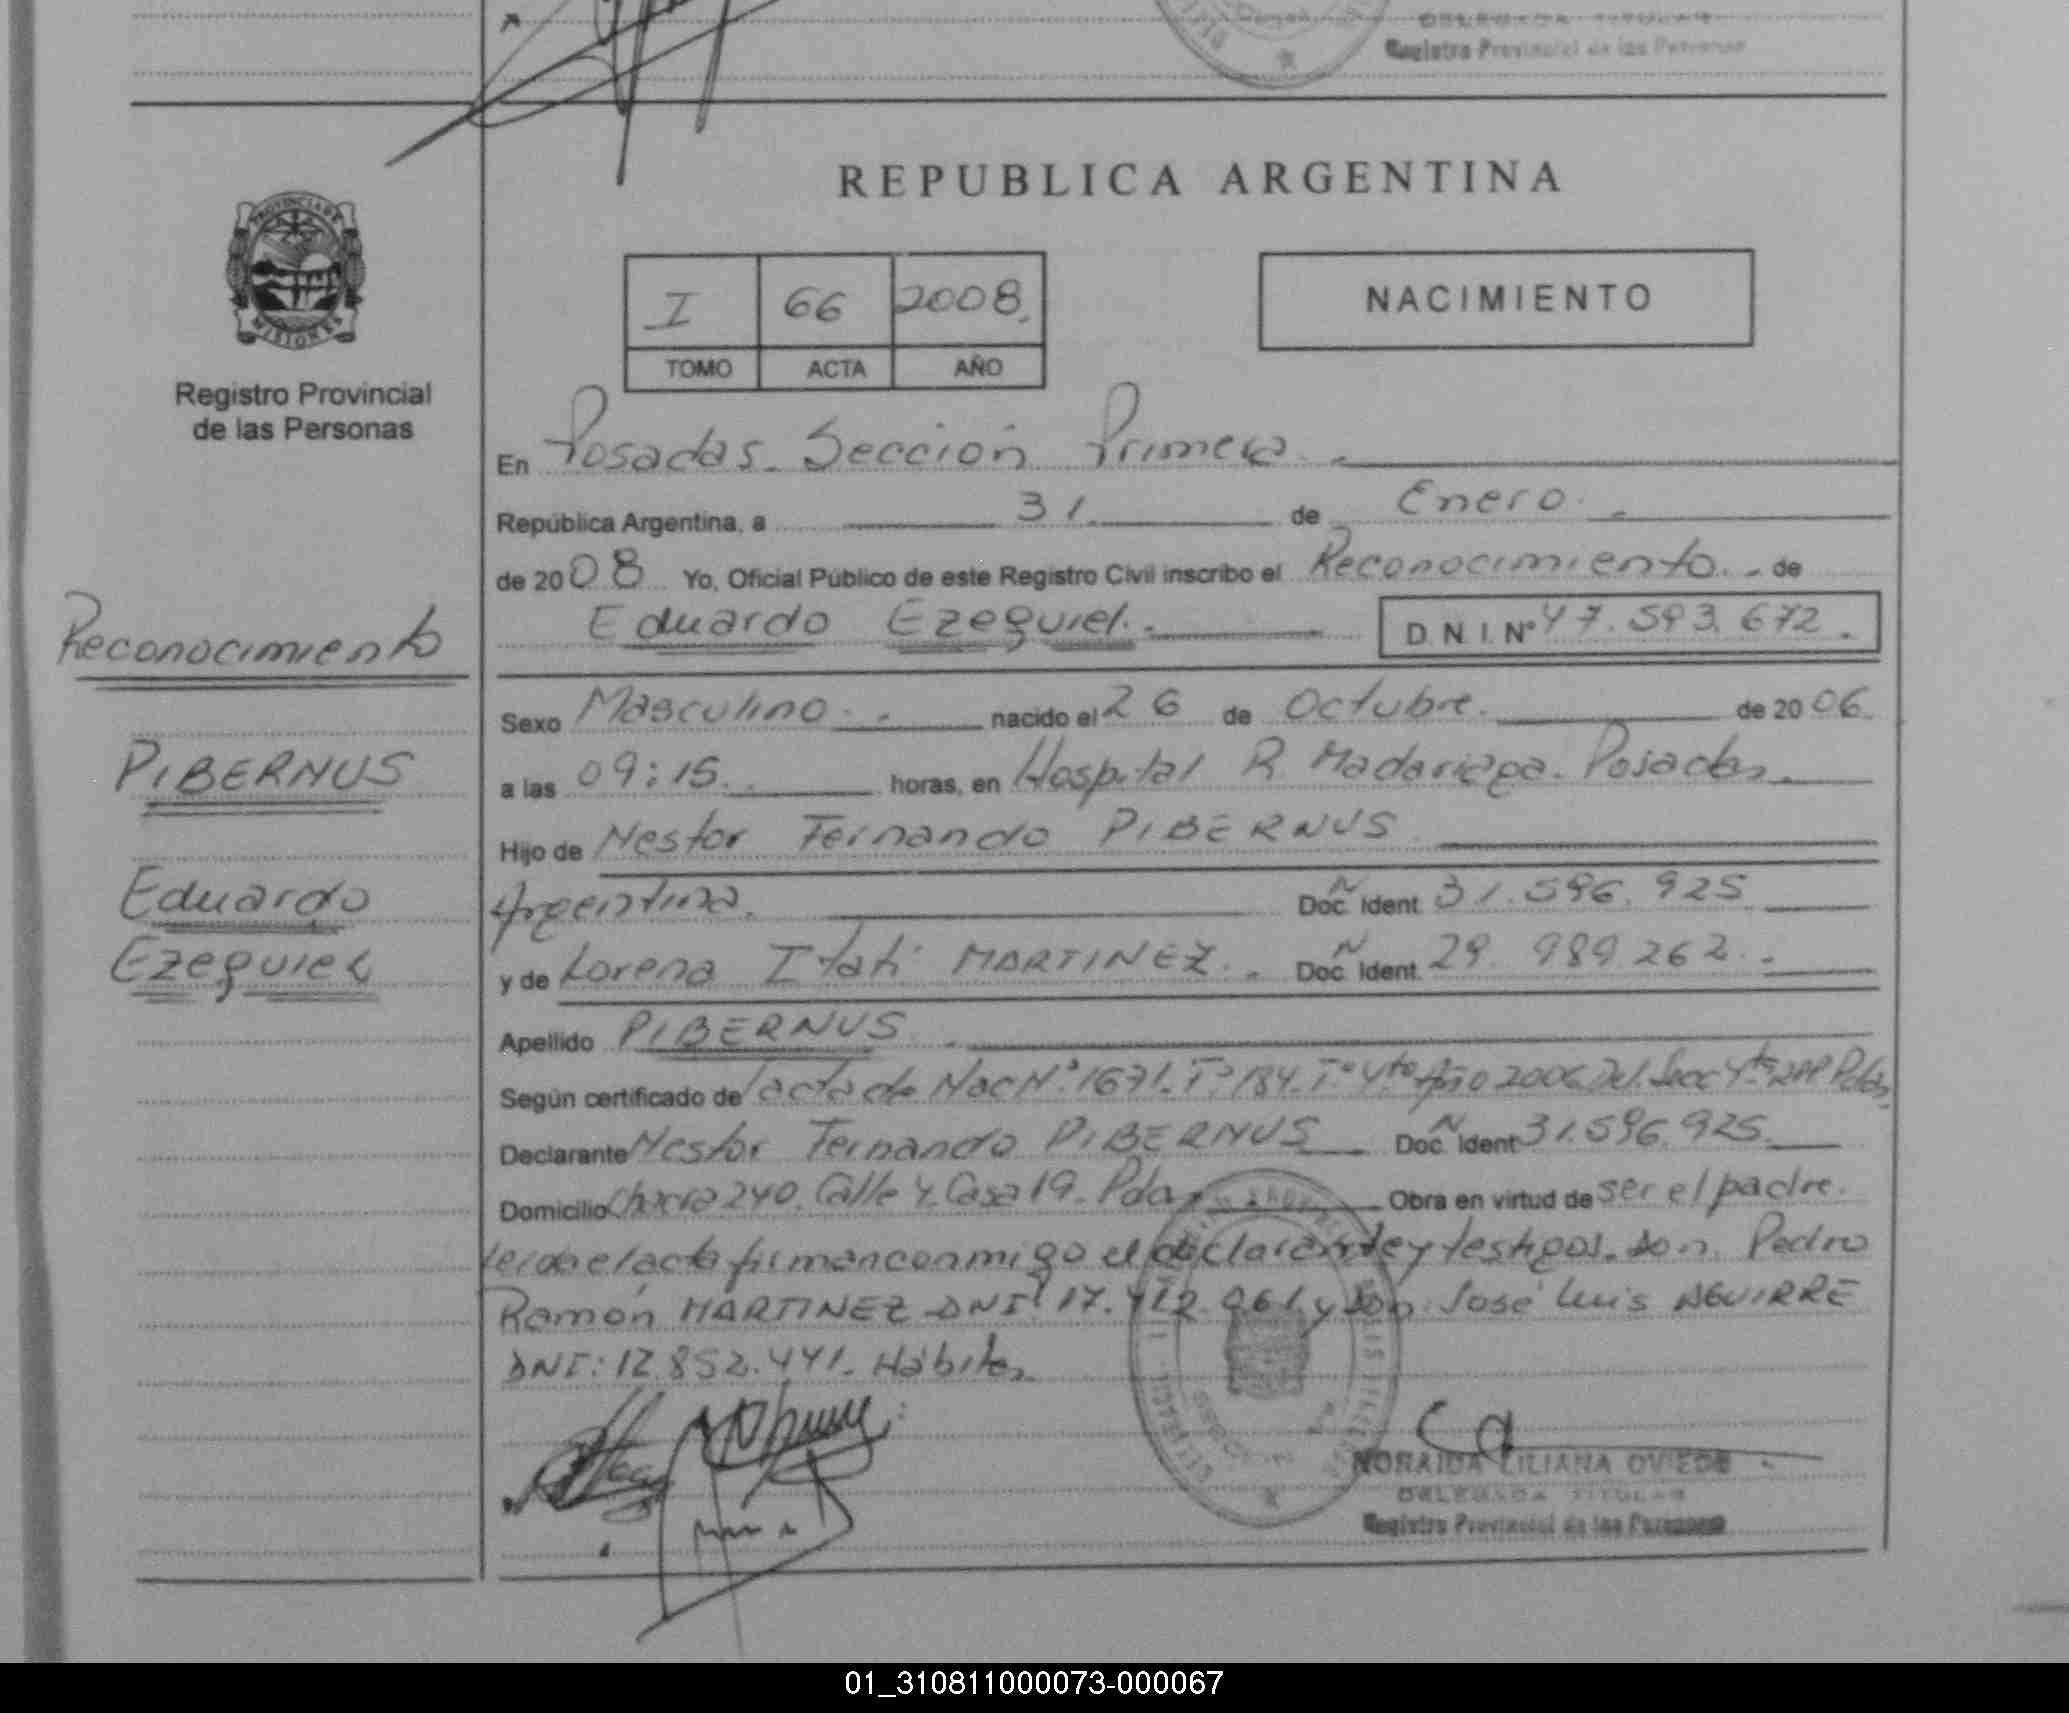 DELEGADA TITULAR
Registro Provincial de las Personas
REPUBLICA ARGENTINA
PROVINCIA DE
MISIONES
Registro Provincial
de las Personas
I 66 2008
TOMO ACTA AÑO
NACIMIENTO
En Posadas. Sección Primera.
República Argentina, a 31 de Enero.
de 2008 Yo, Oficial Público de este Registro Civil inscribo el Reconocimiento. de
Eduardo Ezequiel. D.N.I. Nº 47.593.672.
Reconocimiento
PIBERNUS
Eduardo
Ezequiel
Sexo Masculino. nacido el 26 de Octubre. de 2006.
a las 09:15. horas, en Hospital R. Madariaga. Posadas.
Hijo de Nestor Fernando PIBERNUS
Argentina. Doc. Ident. 31.596.925
y de Lorena Itatí MARTINEZ. Doc. Ident. 29.989.262.
Apellido PIBERNUS
Según certificado de acta de Nac Nº 1671. Tº 4to Año 2006 Del. Secc 4ta RPP Pdas.
Declarante Nestor Fernando PIBERNUS Doc. Ident 31.596.925.
Domicilio Chacra 240. Calle 4. Casa 19. Pdas Obra en virtud de ser el padre.
leida el acta firman conmigo el declarante y testigos. don Pedro
Ramón MARTINEZ DNI: 17.412.061 y don José Luis AGUIRRE
DNI: 12.852.441. Hábiles
NORAIDA LILIANA OVIEDO
DELEGADA TITULAR
Registro Provincial de las Personas
01_310811000073-000067